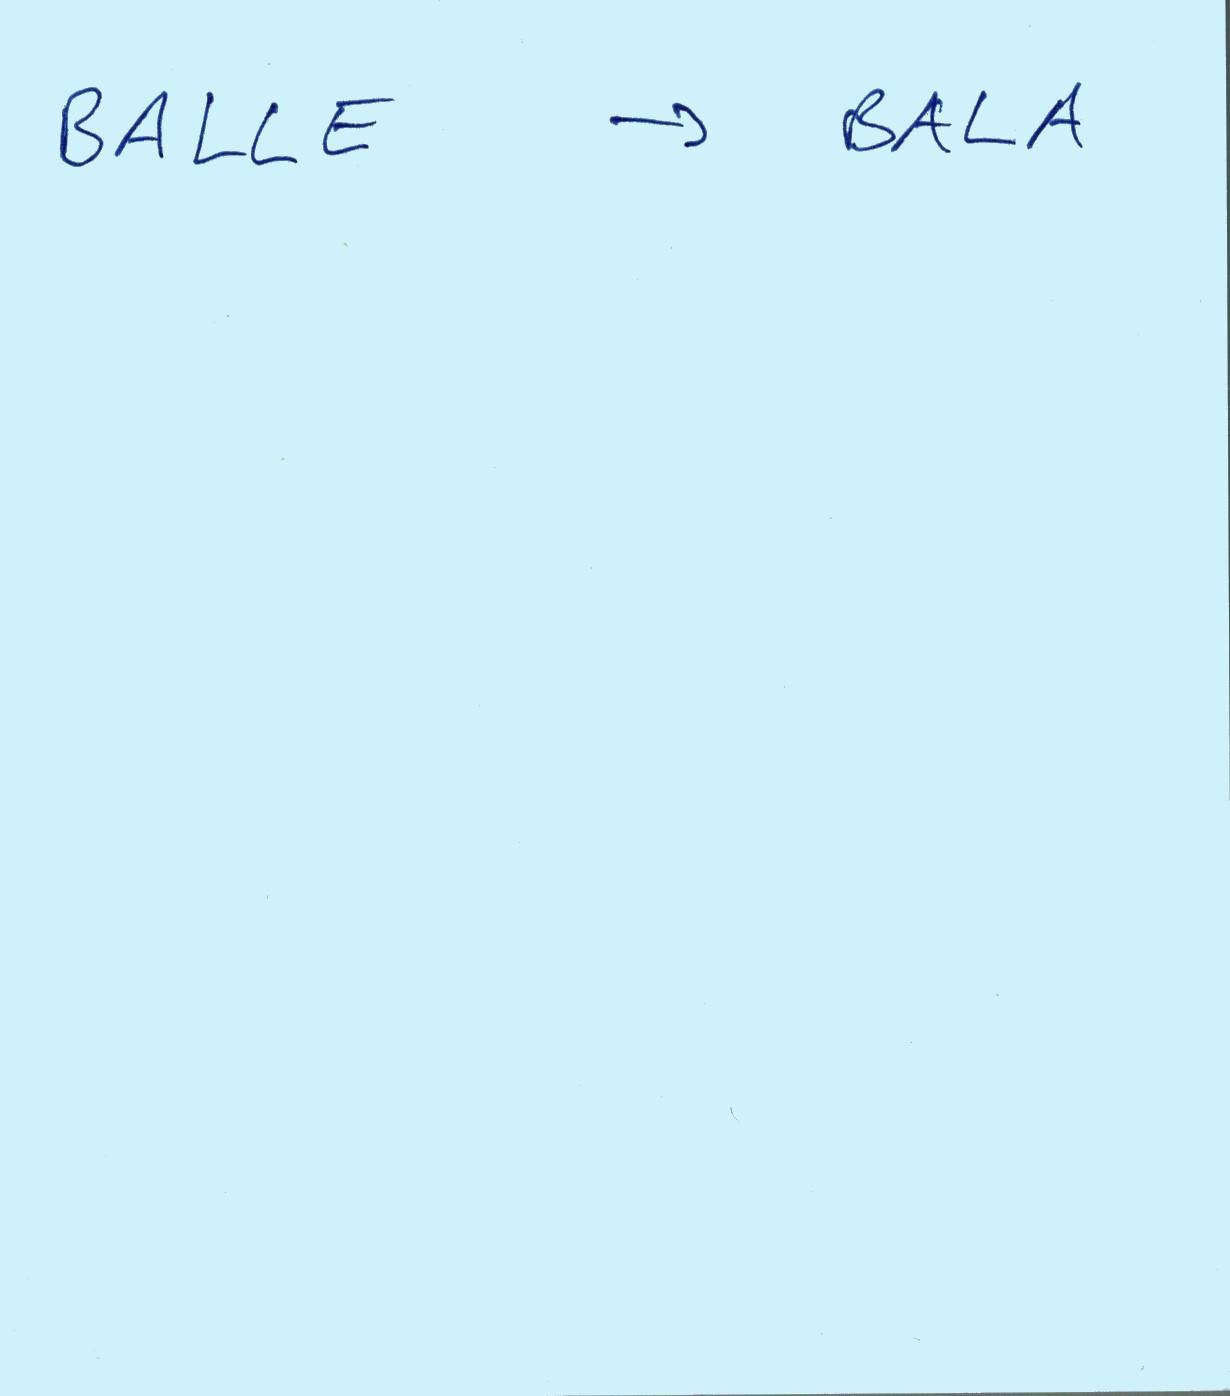 BALLE → BALA